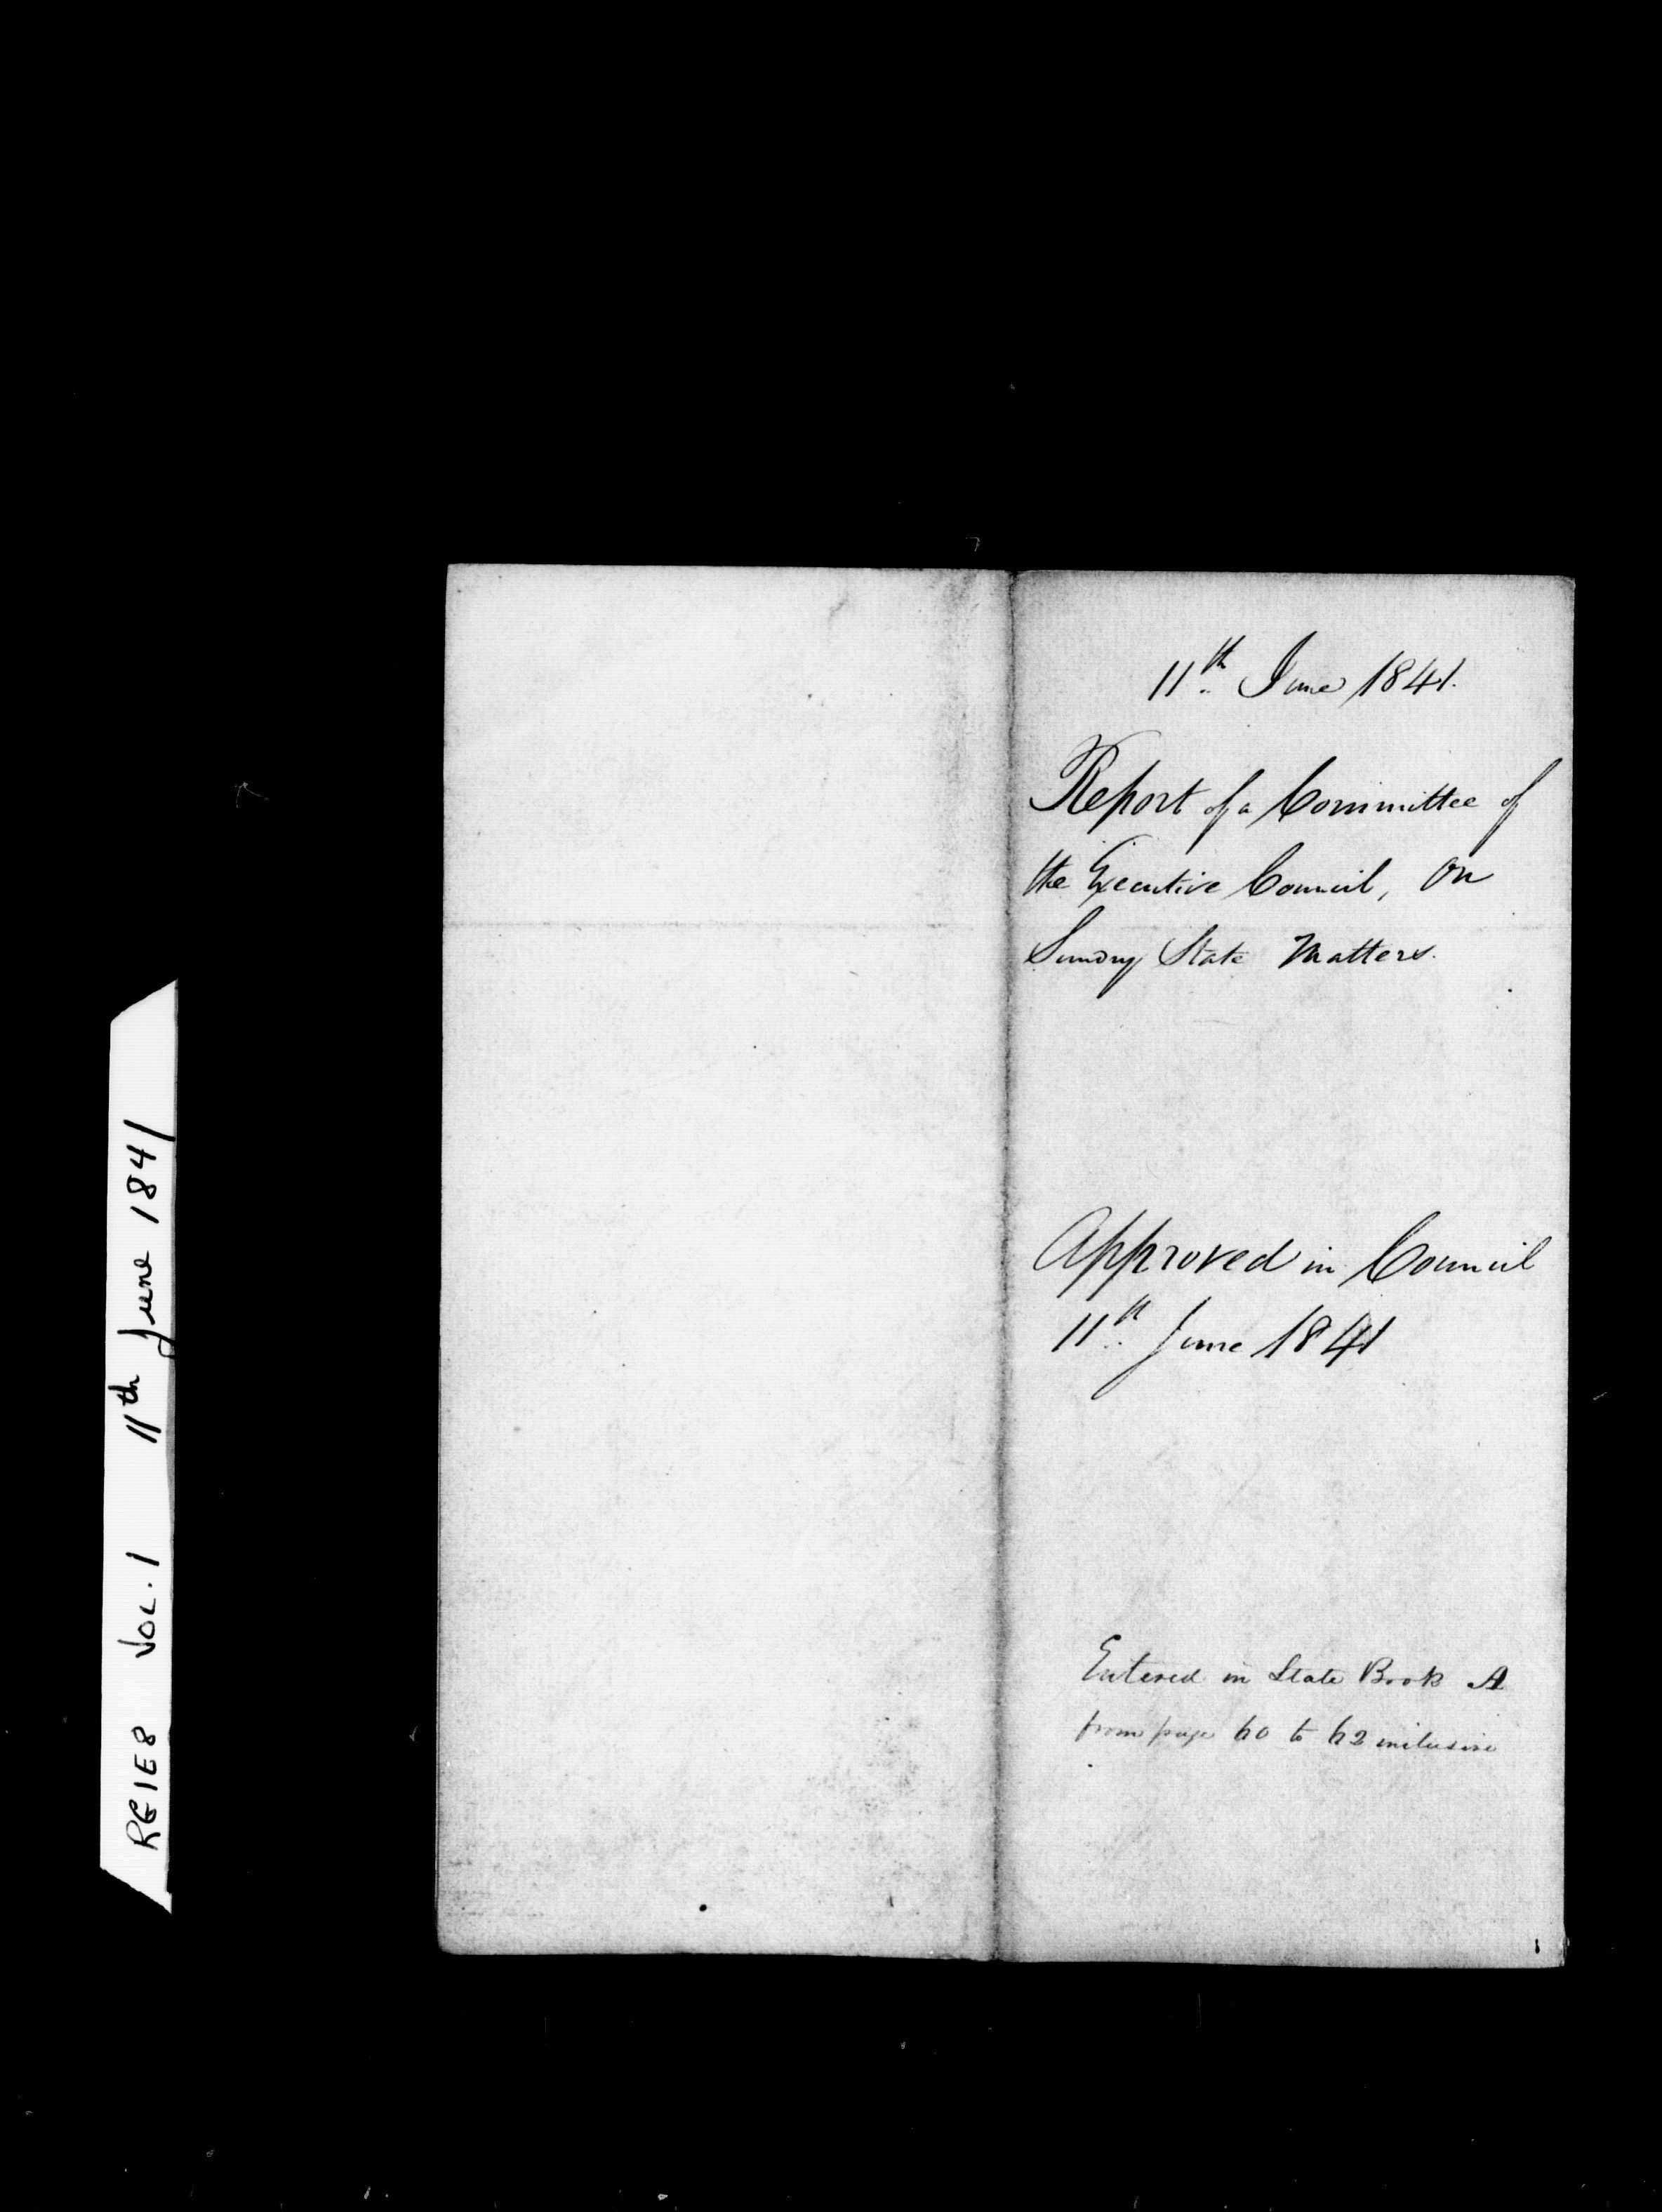 11th June 1841.
Report of a Committee of
the Executive Council, on
Sundry State Matters.
Approved in Council
11th June 1841
Entered in State Book A
from page 60 to 62 inclusive
RG1E8 VOL.1 11th June 1841